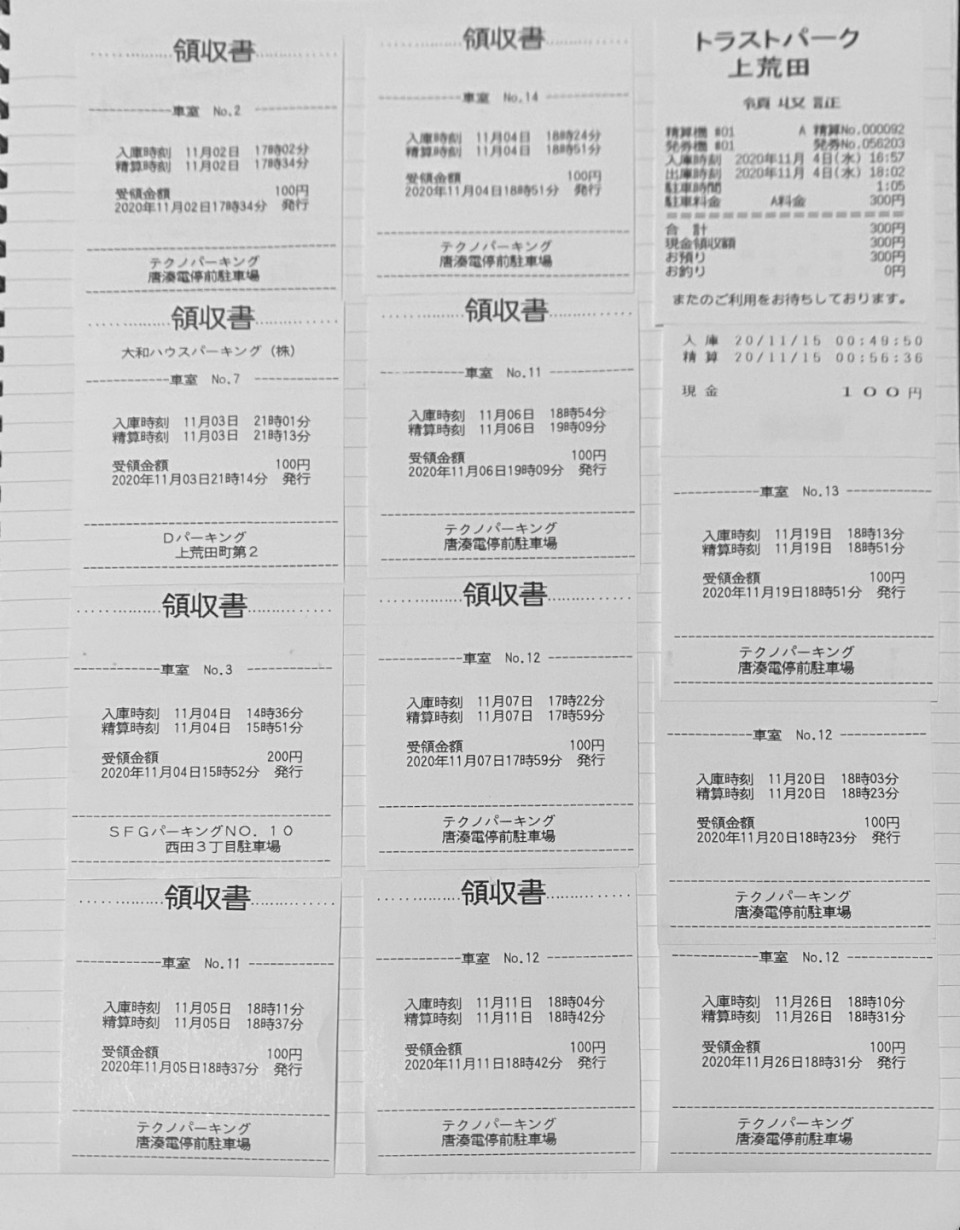 領収書
車室 No.2
入庫時刻 11月02日 17時02分
精算時刻 11月02日 17時34分
受領金額 100円
2020年11月02日17時34分 発行
テクノパーキング
唐湊電停前駐車場
領収書
大和ハウスパーキング(株)
車室 No.7
入庫時刻 11月03日 21時01分
精算時刻 11月03日 21時13分
受領金額 100円
2020年11月03日21時14分 発行
Dパーキング
上荒田町第2
領収書
車室 No.3
入庫時刻 11月04日 14時36分
精算時刻 11月04日 15時51分
受領金額 200円
2020年11月04日15時52分 発行
SFGパーキングNO.10
西田3丁目駐車場
領収書
車室 No.11
入庫時刻 11月05日 18時11分
精算時刻 11月05日 18時37分
受領金額 100円
2020年11月05日18時37分 発行
テクノパーキング
唐湊電停前駐車場
領収書
車室 No.14
入庫時刻 11月04日 18時24分
精算時刻 11月04日 18時51分
受領金額 100円
2020年11月04日18時51分 発行
テクノパーキング
唐湊電停前駐車場
領収書
車室 No.11
入庫時刻 11月06日 18時54分
精算時刻 11月06日 19時09分
受領金額 100円
2020年11月06日19時09分 発行
テクノパーキング
唐湊電停前駐車場
領収書
車室 No.12
入庫時刻 11月07日 17時22分
精算時刻 11月07日 17時59分
受領金額 100円
2020年11月07日17時59分 発行
テクノパーキング
唐湊電停前駐車場
領収書
車室 No.12
入庫時刻 11月11日 18時04分
精算時刻 11月11日 18時42分
受領金額 100円
2020年11月11日18時42分 発行
テクノパーキング
唐湊電停前駐車場
トラストパーク
上荒田
領収証
精算機 #01 A 精算No.000092
発券機 #01 発券No.056203
入庫時刻 2020年11月 4日(水) 16:57
出庫時刻 2020年11月 4日(水) 18:02
駐車時間 1:05
駐車料金 A料金 300円
合計 300円
現金領収額 300円
お預り 300円
お釣り 0円
またのご利用をお待ちしております。
入庫 20/11/15 00:49:50
精算 20/11/15 00:56:36
現金 100円
車室 No.13
入庫時刻 11月19日 18時13分
精算時刻 11月19日 18時51分
受領金額 100円
2020年11月19日18時51分 発行
テクノパーキング
唐湊電停前駐車場
車室 No.12
入庫時刻 11月20日 18時03分
精算時刻 11月20日 18時23分
受領金額 100円
2020年11月20日18時23分 発行
テクノパーキング
唐湊電停前駐車場
車室 No.12
入庫時刻 11月26日 18時10分
精算時刻 11月26日 18時31分
受領金額 100円
2020年11月26日18時31分 発行
テクノパーキング
唐湊電停前駐車場